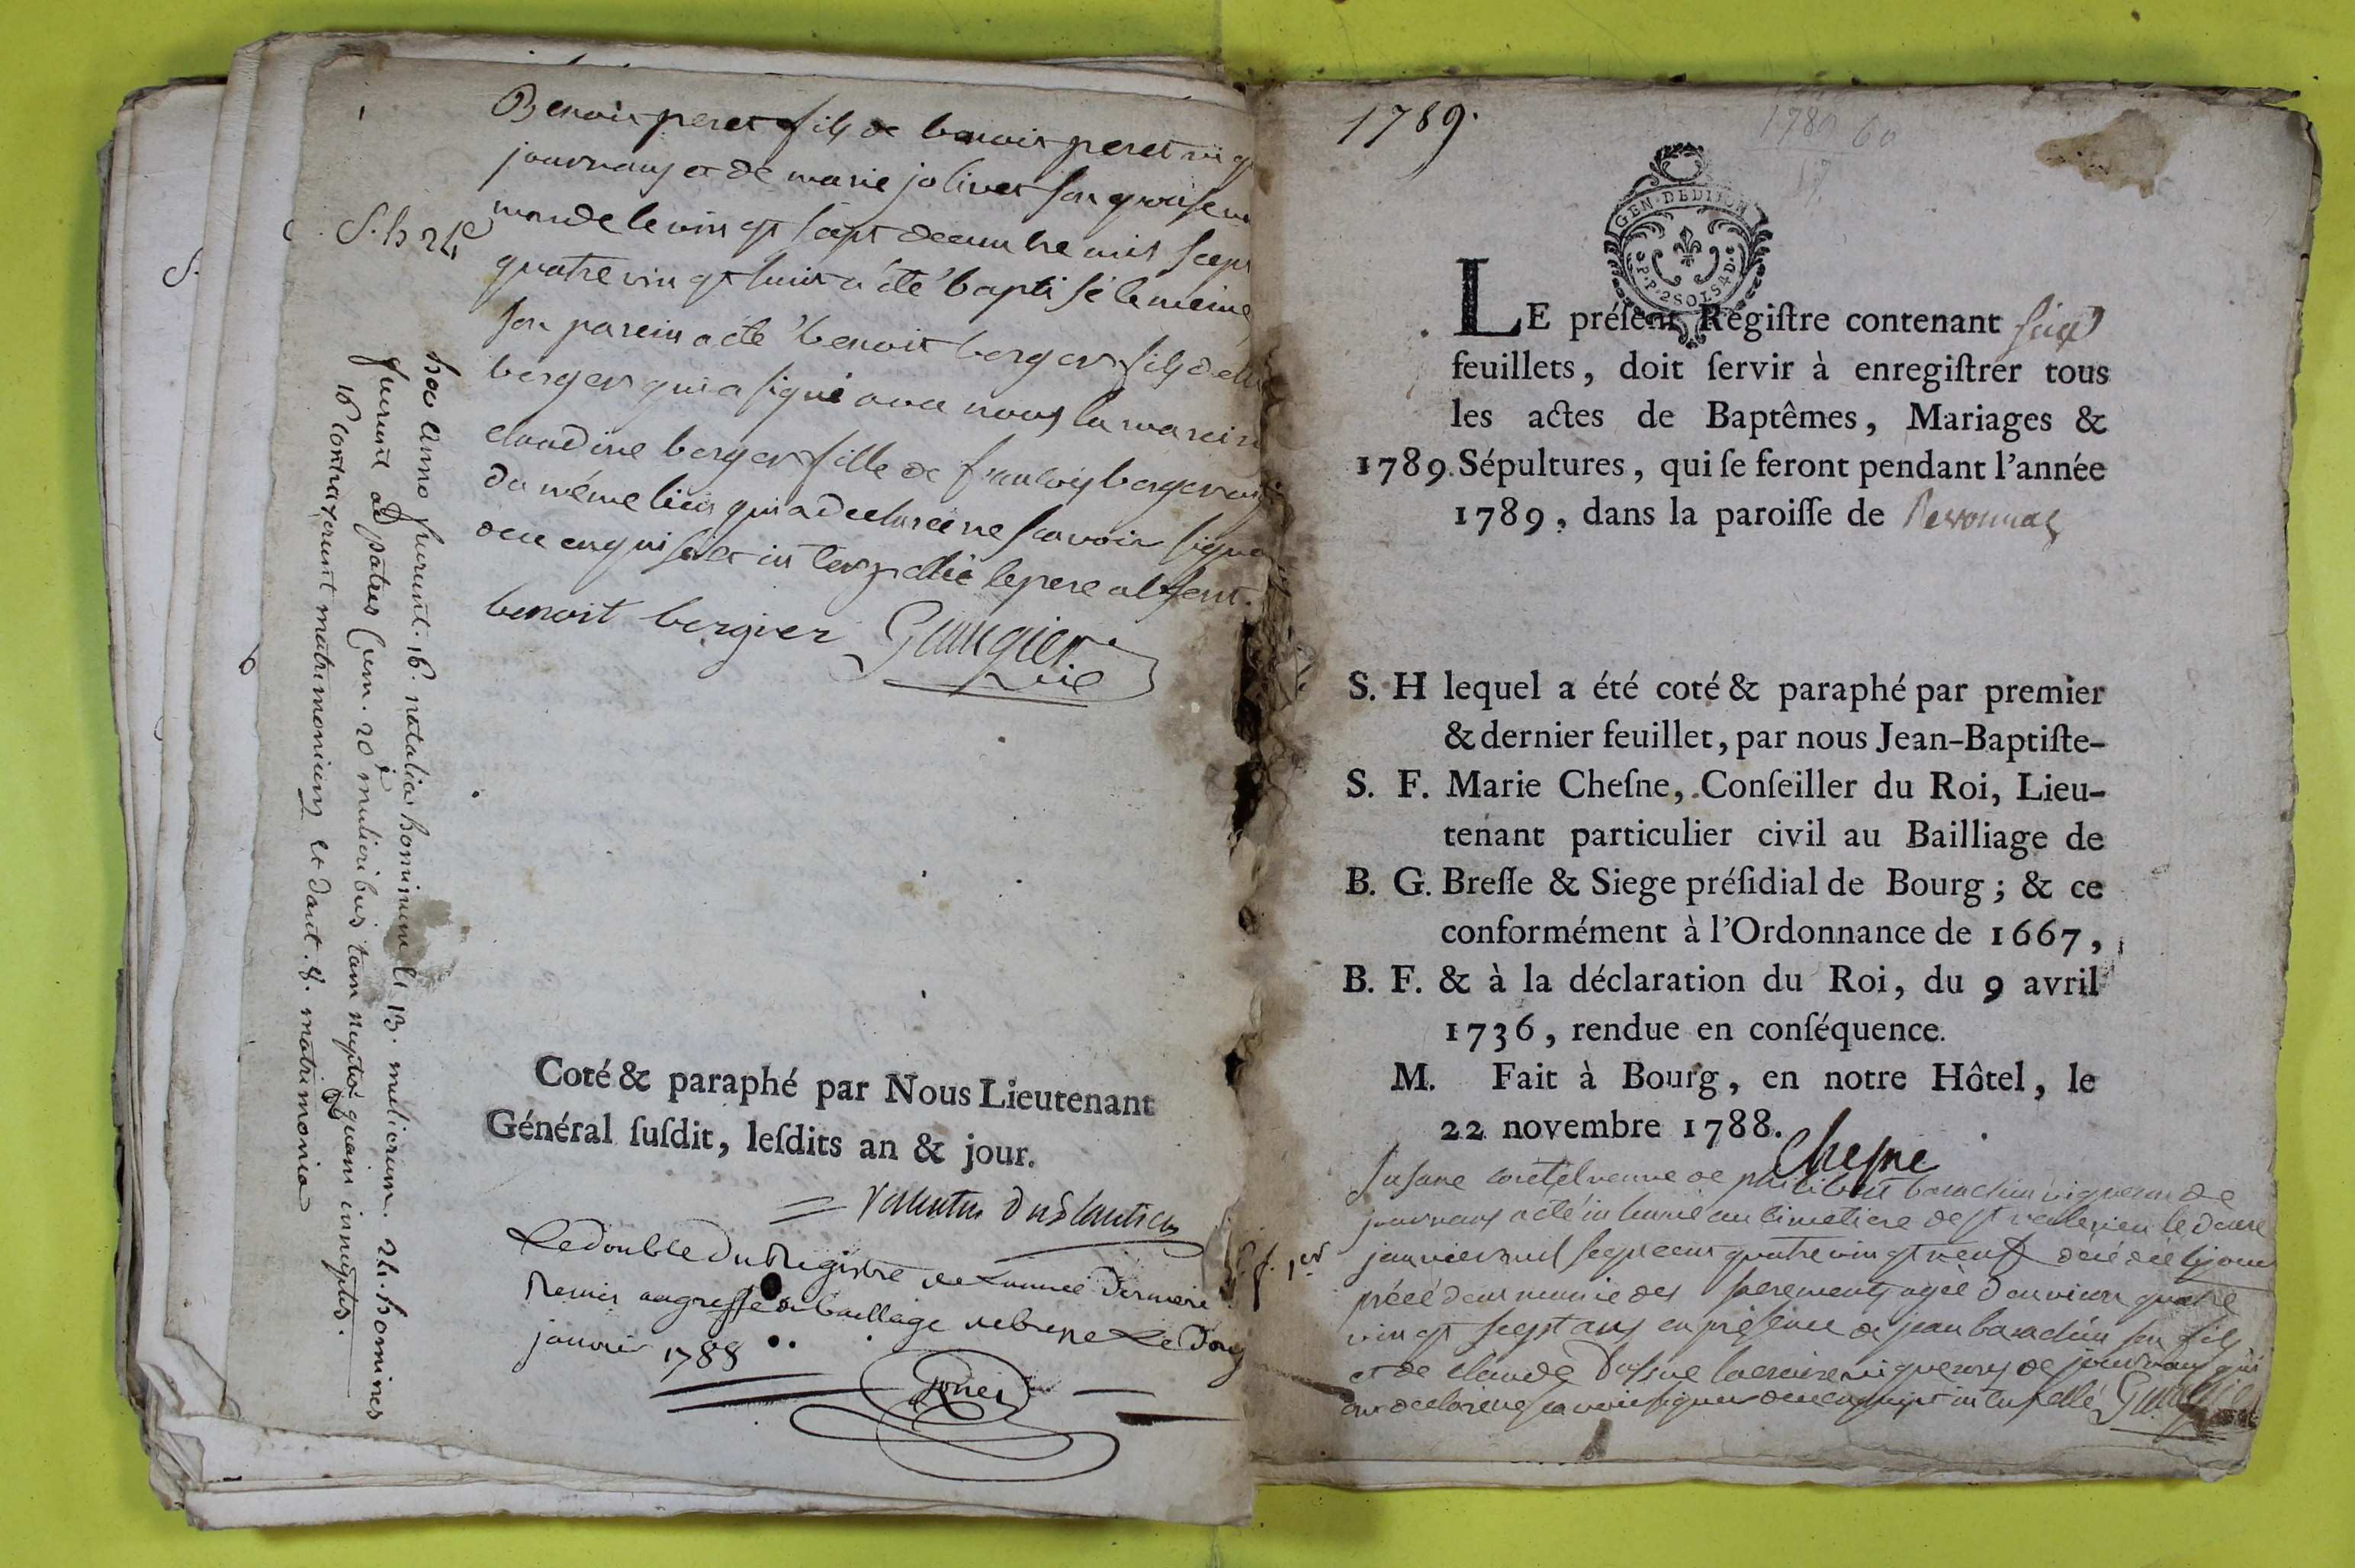 Benoit peret fils de benoit peret
journans et de marie jolivet son
monde le vingt sept decembre mil sept
S. h 24e
quatre vingt huit a été baptisé le meme
son parein a eté benoit berger fils de
berger qui a signé avec nous la marein
claudine berger fille de françois berger
du même lieu qui a declaré ne scavoir signer
de ce enquise et interpellée le pere absent.
benoit bergier
hoc anno fuerunt. 16. natalia hominum et 13. mulierum. 24. homines
fuerunt ad patres cum. 20 mulieribus tam nuptis quam innuptis.
16 contraxerunt matrimonium et dant. 8. matrimonia
Coté & paraphé par Nous Lieutenant
Général ſuſdit, leſdits an & jour.
Le double du Registre de l'année derniere
Remis au greffe du bailliage de bresse Le
janvier 1788
1789.
1789 60
GEN. DE DIJON
P. P. 2 SOLS 4 D.
LE préſent Regiſtre contenant
feuillets, doit ſervir à enregiſtrer tous
les actes de Baptêmes, Mariages &
1789. Sépultures, qui ſe feront pendant l'année
1789, dans la paroiſſe de Revonnas
S. H lequel a été coté & paraphé par premier
& dernier feuillet, par nous Jean-Baptiſte-
S. F. Marie Cheſne, Conſeiller du Roi, Lieu-
tenant particulier civil au Bailliage de
B. G. Breſſe & Siege préſidial de Bourg ; & ce
conformément à l'Ordonnance de 1667,
B. F. & à la déclaration du Roi, du 9 avril
1736, rendue en conſéquence.
M. Fait à Bourg, en notre Hôtel, le
22 novembre 1788.
Chesne
Susane veuve de philibert vigneron de
journans a eté inhumé au cimetiere de st valerien le
S. f. 1er
janvier mil sept cent quatre vingt neuf décédée le jour
précédent munie des sacrements agée d'environ quatre
vingt sept ans en présence de jean son fils
et de claude vignerons de journans qui
ont declaré ne scavoir signer de ce enquis et interpellé